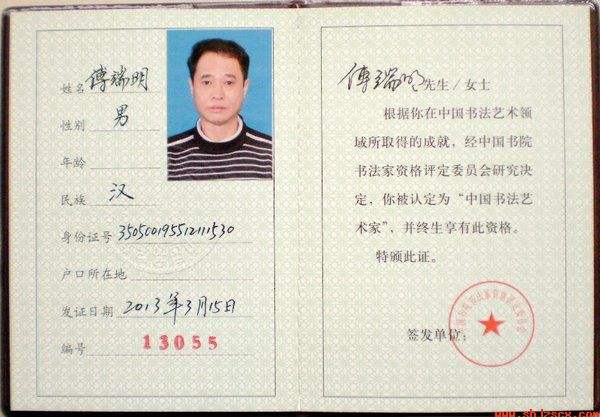 姓名 傅瑞明
性别 男
年龄
民族 汉
身份证号 350500195512111530
户口所在地
发证日期 2013年3月15日
编号 13055
傅瑞明 先生/女士
根据你在中国书法艺术领
域所取得的成就，经中国书院
书法家资格评定委员会研究决
定，你被认定为“中国书法艺
术家”，并终生享有此资格。
特颁此证。
签发单位：